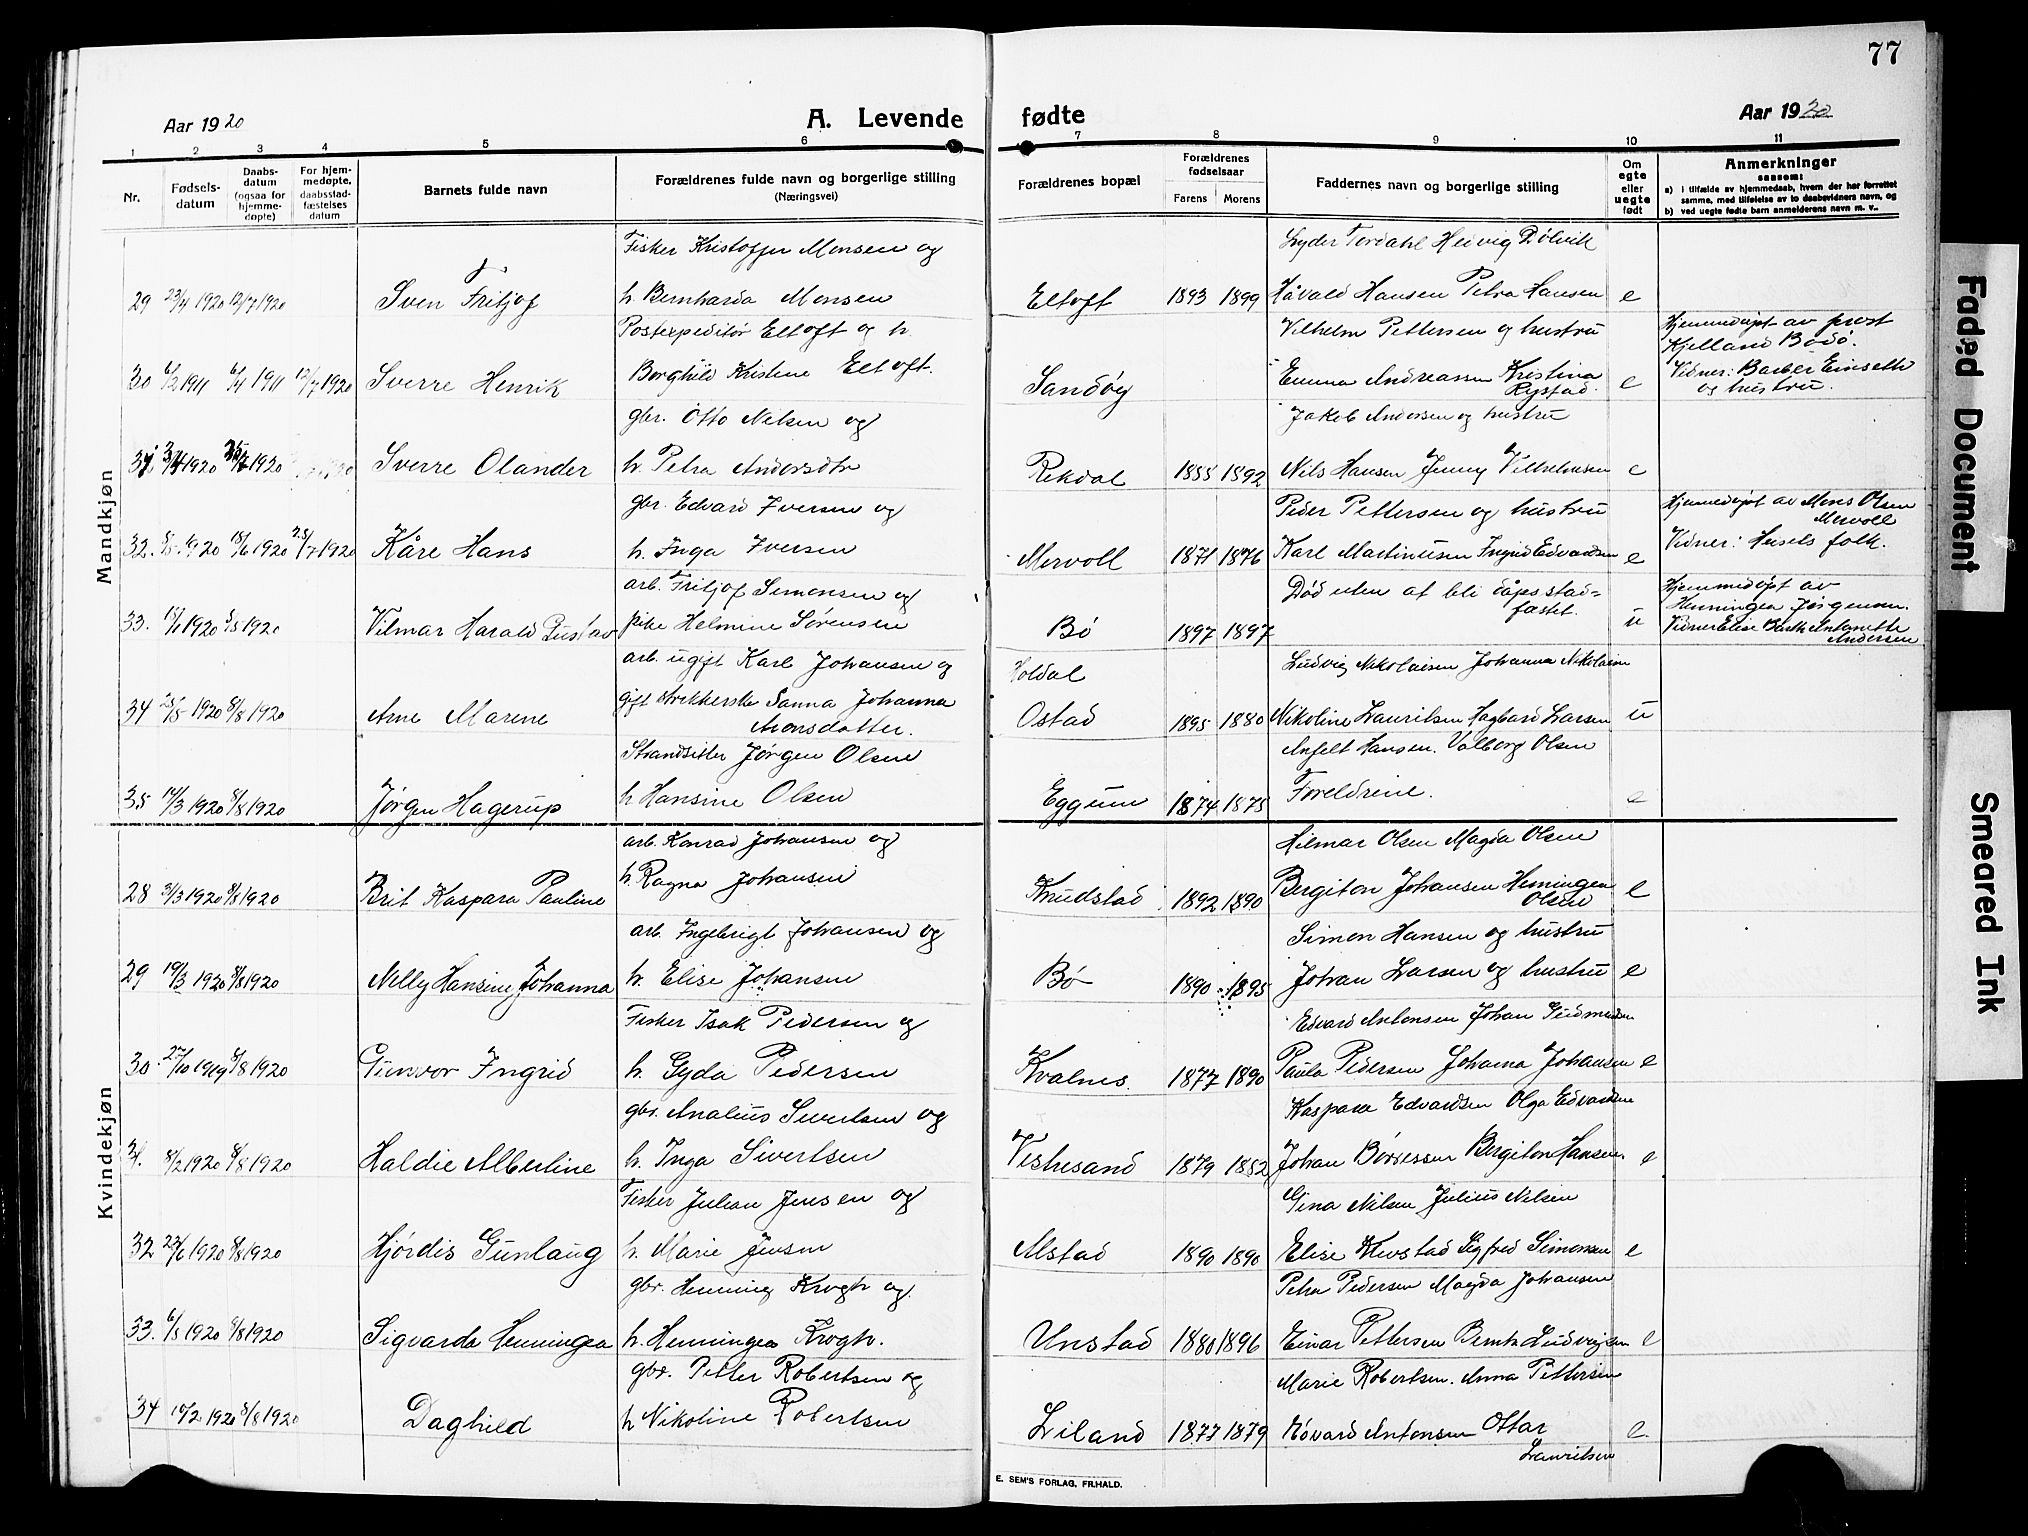 77
Aar 1920
A. Levende
fødte
Aar 1920
1 2 3 4 5 6 7 8 9 10 11
Nr.
Fødsels-
datum
Daabs-
datum
(ogsaa for
hjemme-
døpte)
For hjem-
medøpte,
daabsstad-
fæstelses
datum
Barnets fulde navn
Forældrenes fulde navn og borgerlige stilling
(Næringsvei)
Forældrenes bopæl
Forældrenes
fødselsaar
Farens Morens
Faddernes navn og borgerlige stilling
Om
egte
eller
uegte
født
Anmerkninger
sansom:
a) i tilfælde av hjemmedaab, hvem der har forrettet
samme, med tilføielse av to daabsvidners navn, og
b) ved uegte fødte barn anmelderens navn m. v..
Mandkjøn
Fisker Kristoffer Monsen og
Lyder Tordahl Hedvig Dølvik
29 23/4 1920 12/7 1920 Sven Fritjof h. Bernharda Monsen Eltoft 1893 1899 Håvald Hansen Petra Hansen e
Postexpeditør Eltoft og h.
Vilhelm Pettersen og hustru
Hjemmedøpt av prost
Kjelland Bodø.
30 6/2 1911 6/4 1911 12/7 1920 Sverre Henrik Borghild Kristine Eltoft. Sandøy Emma Andreassen Kristina
Rystad. e
Vidner: Barber Einseth
og hustru.
gbr. Otto Nilsen og
Jakob Andersen og hustru
31 1920 1920 Sverre Olander h. Petra Andersdtr Rekdal 1888 1892 Nils Hansen Jenny Vilhelmsen e
gbr. Edvard Iversen og
Peder Pettersen og hustru
Hjemmedøpt av Mons Olsen
Mervoll
32. 1920 18/6 1920 25/7 1920 Kåre Hans h. Inga Iversen Mervoll 1871 1876 Karl Martinusen Ingrid Edvardsen e
Vidner: Husets folk.
arb. Fritjof Simonsen og
Død uten at bli dåpsstad-
fæstet.
Hjemmedøpt av
Henningea Jørgensen.
33. 15/1 1920 5/5 1920 Vilmar Harald Gustav pike Helmine Sørensen Bø 1897 1897 u
Vidner Elise Barth Antonette
Andersen
arb. ugift Karl Johansen og
Holdal
Ludvig Nikolaisen Johanna Nikolaisen
34 25/5 1920 8/8 1920 Arne Marene gift Sanna Johanna
Aronsdatter. Ostad 1895 1880 Nikoline Lauritsen Hagbard Larsen u
Strandsitter Jørgen Olsen
Anfelt Hansen. Valborg Olsen
35 14/3 1920 8/8 1920 Jørgen Hagerup h Hansine Olsen Eggum 1874 1875 Foreldrene. e
Kvindekjøn
arb. Konrad Johansen og
Hilmar Olsen Magda Olsen
28 31/3 1920 8/8 1920 Brit Kaspara Pauline h. Ragna Johansen Knudstad 1892 1890 Bergiton Johansen Henningea
Olsen e
arb. Ingebrigt Johansen og
Simon Hansen og hustru
29 19/3 1920 8/8 1920 Nelly Hansine Johanna h. Elise Johansen Bø 1890 1895 Johan Larsen og hustru e
Fisker Isak Pedersen og
Edvard Antonsen Johan Gudmundsen
30. 27/10 1919 8/8 1920 Gunvor Ingrid h. Gyda Pedersen Kvalnes. 1877 1890 Paula Pedersen Johanna Johansen e
gbr. Analius Sivertsen og
Kaspara Edvardsen Olga Edvardsen
31. 8/2 1920 8/8 1920 Haldie Albertine h. Inga Sivertsen Vestresand 1879 1882 Johan Børgessen Bergiton Hansen. e
Fisker Julian Jensen og
Gina Nilsen Julius Nilsen
32 22/6 1920 8/8 1920 Hjørdis Gunlaug h. Marie Jensen Alstad 1890 1890 Elise Kvostad Sigfred Simonsen e
gbr. Henning Krogh og
Petra Pedersen Magda Johansen
33. 6/5 1920 8/8 1920 Sigvarda Henningea h. Henningea Krogh. Unstad 1880 1896 Einar Pettersen Bernts Ludvigsen e
gbr. Petter Robertsen og
Marie Robertsen. Anna Pettersen
34 10/2 1920 8/8 1920 Daghild h Nikoline Robertsen Liland 1877 1879 Edvard Antonsen Ottar
Lauritsen e.
E. SEM'S FORLAG, FR.HALD.
Faded Document
Smeared Ink